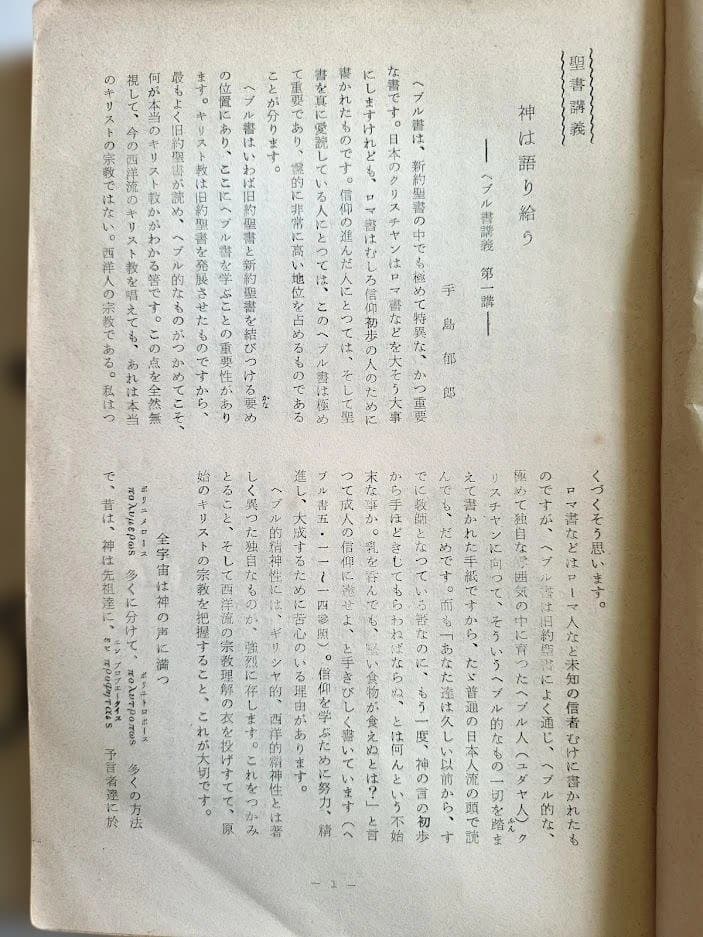 聖書講義
神は語り給う
― ヘブル書講義 第一講 ―
手島郁郎
ヘブル書は、新約聖書の中でも極めて特異な、かつ重要
な書です。日本のクリスチャンはロマ書などを大そう大事
にしますけれども、ロマ書はむしろ信仰初歩の人のために
書かれたものです。信仰の進んだ人にとつては、そして聖
書を真に愛読している人にとつては、このヘブル書は極め
て重要であり、霊的に非常に高い地位を占めるものである
ことが分ります。
ヘブル書はいわば旧約聖書と新約聖書を結びつける要め
かな
の位置にあり、ここにヘブル書を学ぶことの重要性があり
ます。キリスト教は旧約聖書を発展させたものですから、
最もよく旧約聖書が読め、ヘブル的なものがつかめてこそ、
何が本当のキリスト教かがわかる筈です。この点を全然無
視して、今の西洋流のキリスト教を唱えても、あれは本当
のキリストの宗教ではない。西洋人の宗教である。私はつ
くづくそう思います。
ロマ書などはローマ人など未知の信者むけに書かれたも
のですが、ヘブル書は旧約聖書によく通じ、ヘブル的な、
極めて独自な雰囲気の中に育つたヘブル人（ユダヤ人）ク
ふん
リスチャンに向つて、そういうヘブル的なもの一切を踏ま
えて書かれた手紙ですから、たゞ普通の日本人流の頭で読
んでも、だめです。而も「あなた達は久しい以前から、す
でに教師となつている筈なのに、もう一度、神の言の初歩
から手ほどきしてもらわねばならぬ、とは何んという不始
末な事か。乳を呑んでも、堅い食物が食えぬとは？」と言
つて成人の信仰に進せよ、と手きびしく書いています（ヘ
ブル書五・一一～一四参照）。信仰を学ぶために努力、精
進し、大成するために苦心のいる理由があります。
ヘブル的精神性には、ギリシヤ的、西洋的精神性とは著
しく異つた独自なものが、強烈に存します。これをつかみ
とること、そして西洋流の宗教理解の衣を投げすてて、原
始のキリストの宗教を把握すること、これが大切です。
全宇宙は神の声に満つ
ポリュメロース ポリュトロポース
πολυμερως 多くに分けて、πολυτροπως 多くの方法
で、昔は、神は先祖達に、εν προφηταις 予言者達に於
エン プロフエータイス
― 1 ―